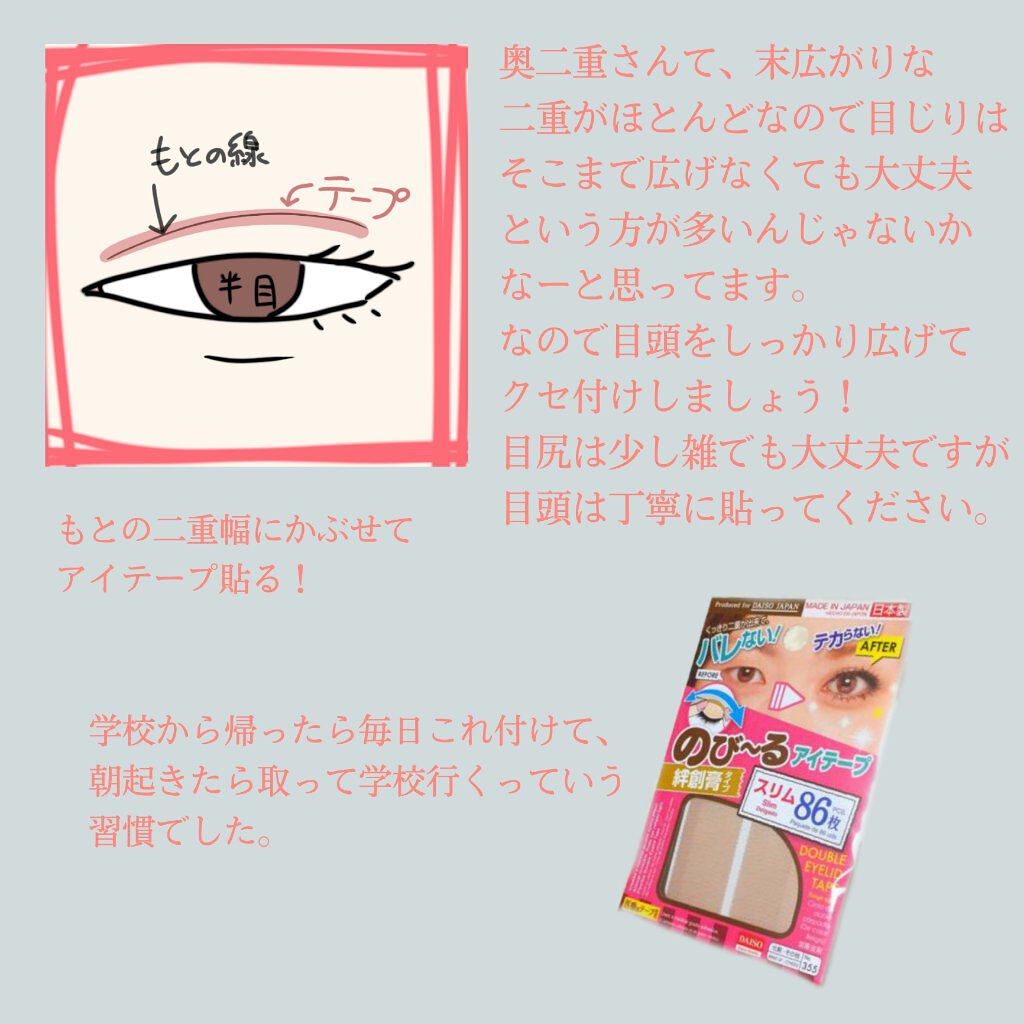 もとの線
テープ
半目
奥二重さんて、末広がりな
二重がほとんどなので目じりは
そこまで広げなくても大丈夫
という方が多いんじゃないか
なーと思ってます。
なので目頭をしっかり広げて
クセ付けしましょう！
目尻は少し雑でも大丈夫ですが
目頭は丁寧に貼ってください。
もとの二重幅にかぶせて
アイテープ貼る！
学校から帰ったら毎日これ付けて、
朝起きたら取って学校行くっていう
習慣でした。
Produced for DAISO JAPAN
MADE IN JAPAN
日本製
バレない！
テカらない！
AFTER
BEFORE
のび～る
アイテープ
絆創膏タイプ
スリム
Slim
Delgado
86枚
PCS.
DOUBLE
EYELID
TAPE
DAISO
355